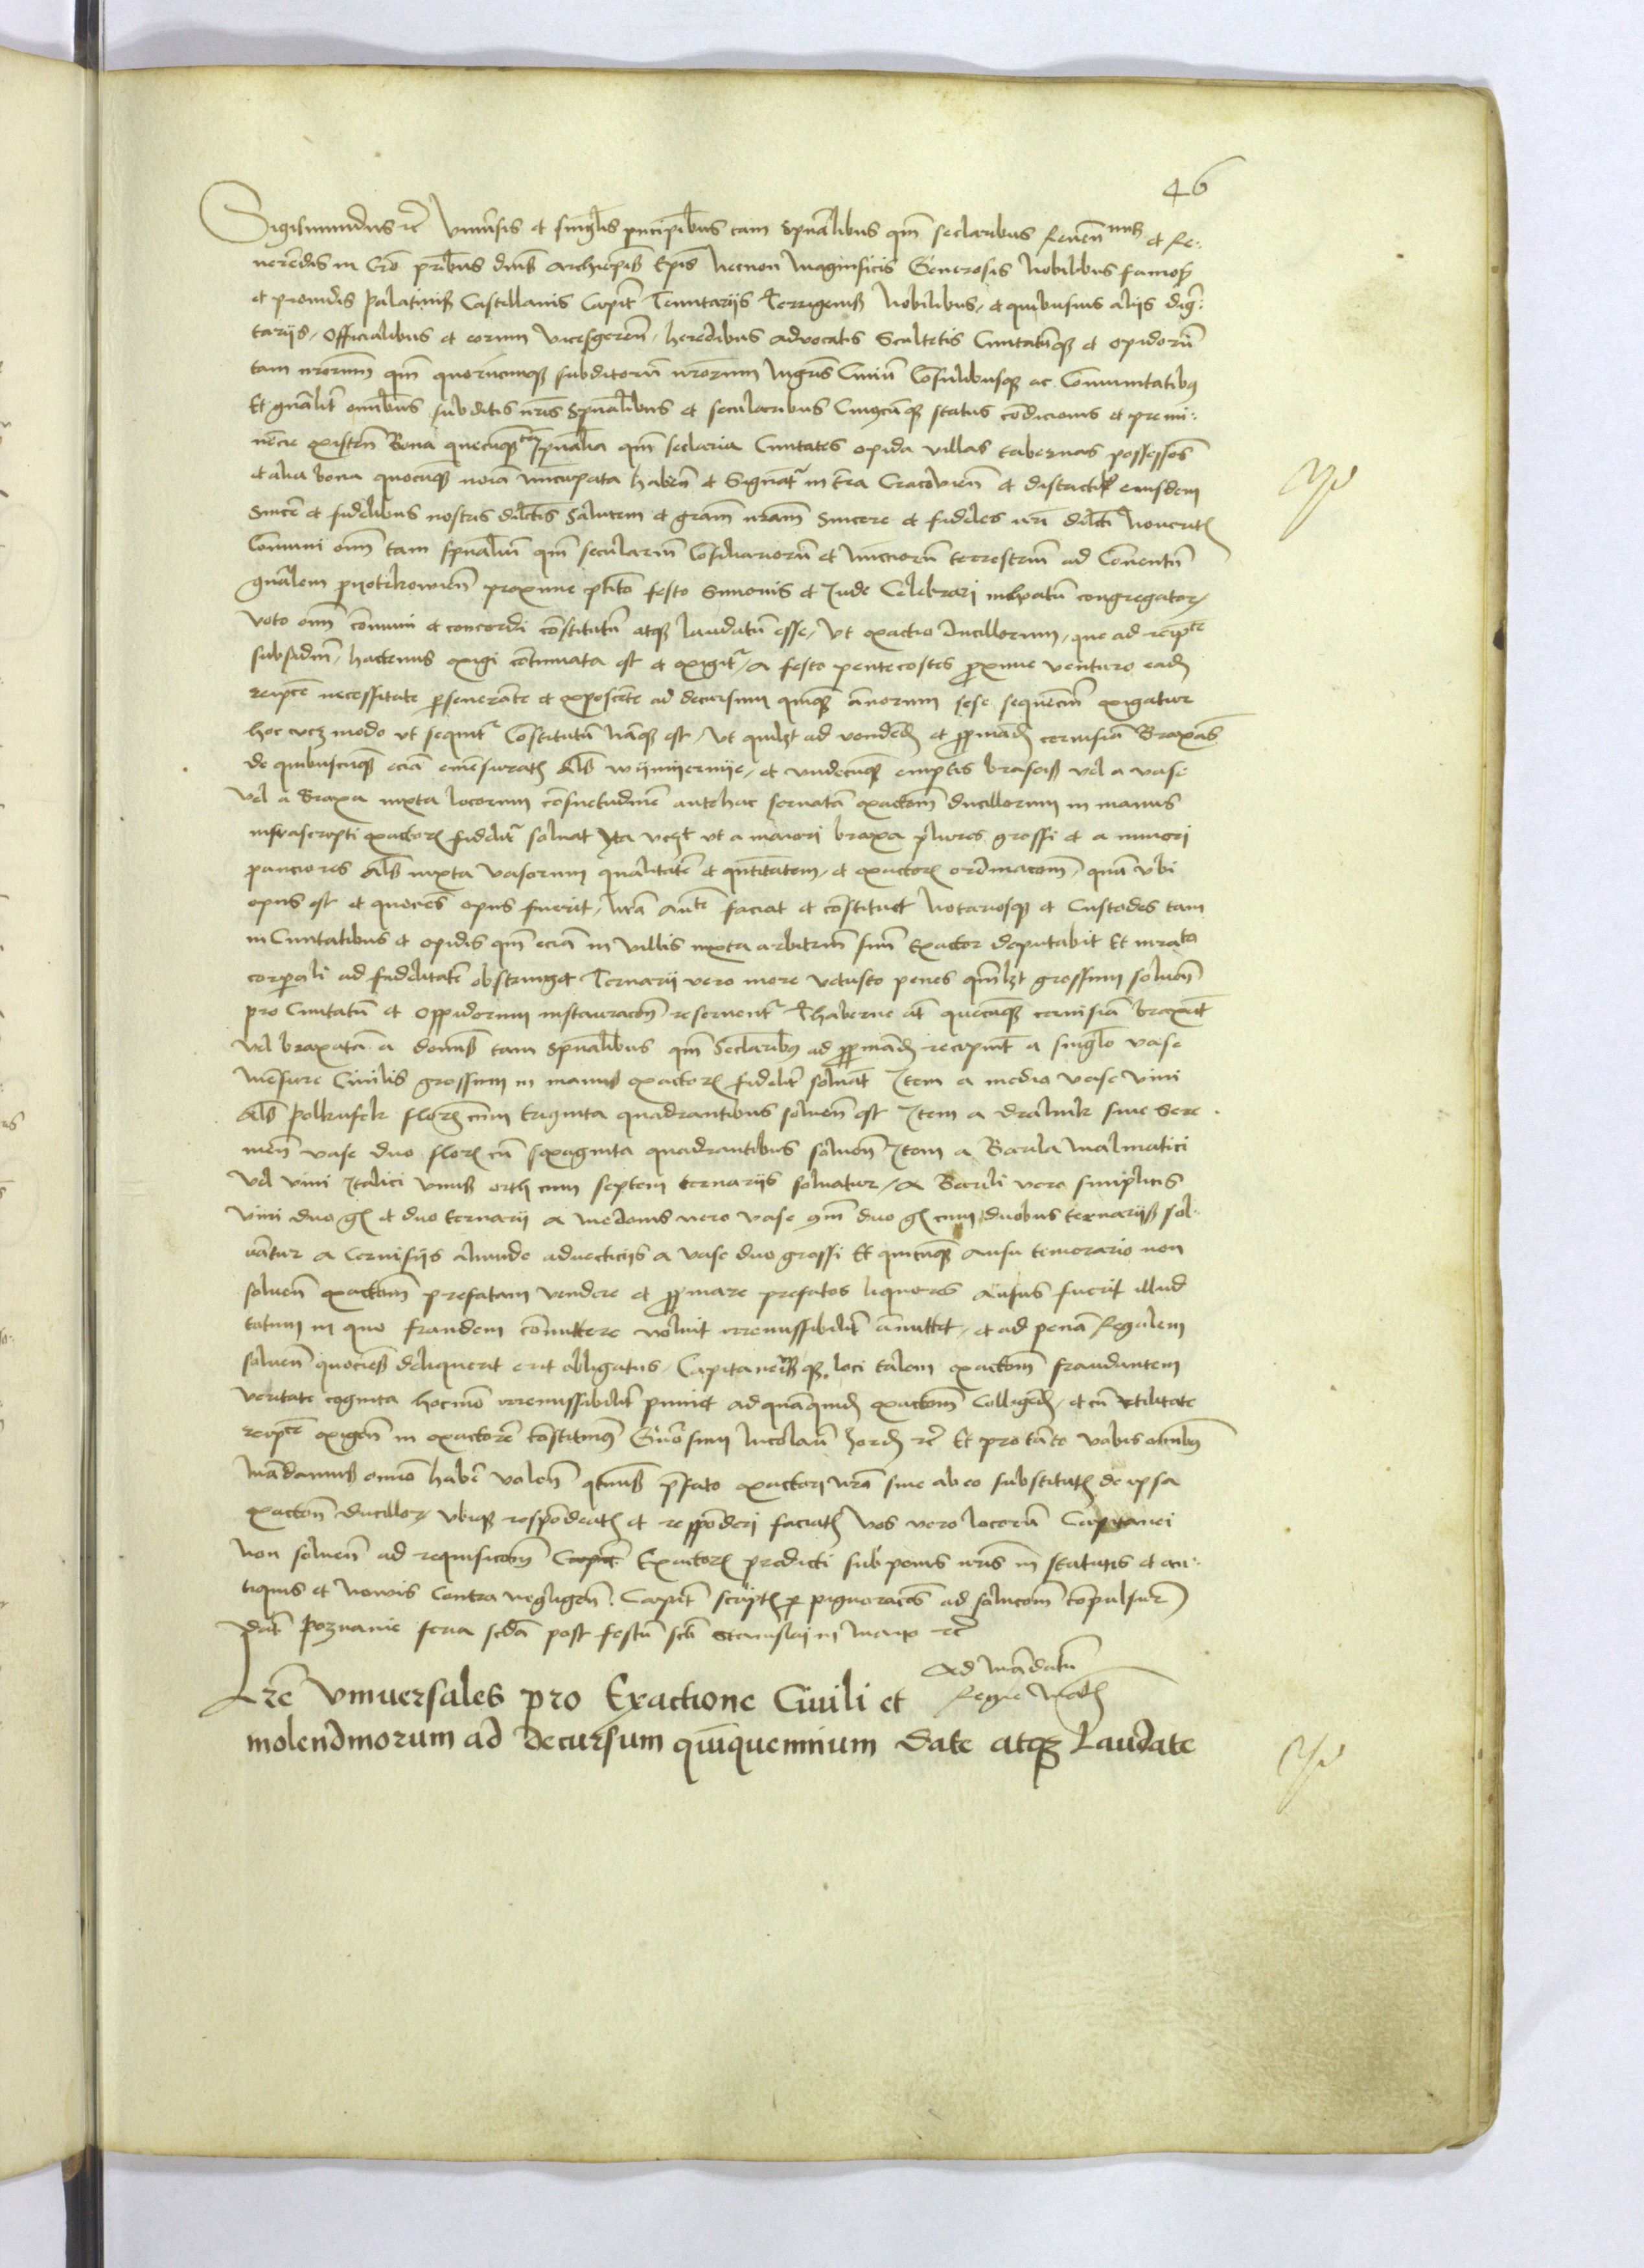 46
Sigismundus rc Vniuersis et singulis principibus tam spualibus qm seclaribus Reuen et Re:
uerendis in Cro pribus dnis Archiepis Epis Necnon Magnificis Generosis Nobilibus famosis
et prouidis Palatinis Castellanis Capit Tenutariis Terrigenis Nobilibus et quibusuis aliis dig:
tariis Officialibus et eorum vicesgeren heredibus aduocatis Scultetis Ciuitatumque et opidorum
tam nrorum qm quorumcumque subditorum nrorum mgris Ciuium Cosulibusque ac Comunitatibus
Et gnalit omibus subditis nris Spualibus et secularibus Cuiuscumque status condicionis et premi:
nencie existen Bona quecumque tam spualia qm seclaria Ciuitates opida villas tabernas possessos
et alia bona quocumque noie nuncupata haben et Signat in tra Cracouien et districtu eiusdem
Sincere et fidelibus nostris dilectis Salutem et gram nram Sincere et fideles nri dilecti Noueritis
Comuni oim tam spualium qm secularium Consiliariorum et nuncciorum terrestrium ad Conuentum
gnalem pyotrkowien proxime ptito festo Simonis et Jude Celebrari congregator
voto oim comuni et concordi constitutum atque laudatum esse, Vt exactio ducillorum, que ad reipce
subsidium, hactenus exigi continuata est et exigitur, a festo pentecostes proxime venturo eadem
reipce necessitate perseuerante et exposcente ad decursum quinque annorum sese sequencium exigatur
hoc vcz modo vt sequitur Constitutum namque est, Vt quilibet ad vendend et propinand ceruisiam Braxans
de quibuscumque eciam emensuratis als wymyernye, et vndecumque emptis braseis vel a vase
vel a Braxa iuxta locorum consuetudinem antehac seruatam exactionem ducillorum in manus
infrascripti exactoris fidelit soluat Ita vczt vt a maiori braxa plures grossi et a minori
pauciores als iuxta vasorum qualitatem et quantitatem, et exactoris ordinacionem, quam vbi
opus est et quociens opus fuerit, nra aucte faciat et constituet Notariosque et Custodes tam
in Ciuitatibus et opidis qm eciam in villis iuxta arbitrium suum Exactor deputabit Et iurato
corporali ad fidelitatem obstringet Ternarii vero more vetusto penes qmlzt grossum soluen
pro Ciuitatum et Oppidorum instauracione reseruentur Thaberne at quecumque ceruisiam braxant
vel braxatam a dominis tam spualibus qm Seclaribus ad propinand recipiunt a singulo vase
Mensure Ciuilis grossum in manus exactoris fidelit soluant Item a media vase vini
als Polkufek floren cum triginta quadrantibus soluen est Item a dralnik siue Sere
mien vase duo floren cum sexaginta quadrantibus soluen Item a Barila Malmatici
vel vini Italici vnus orth cum septem ternariis soluatur, a Barili vero simplicis
vini duo gr et duo ternarii a medonis vero vase qm duo gr cum duobus ternariis sol:
uantur a Ceruisiis aliunde aduecticiis a vase duo grossi Et quicumque ausu temerario non
soluen exactionem prefatam vendere et propinare prefatos liquores ausus fuerit illud
totum in quo fraudem comittere voluit irremissibilit amittet, et ad penam Regalem
soluen quociens deliquerit erit obligatus, Capitaneusque loci talem exactionem fraudantem
veritate cognita hocmodo irremissibilit puniet ad quamquidem exactionem Colligend, et cum vtilitate
reipce exigen in exactorem constituimus Gnosum Nicolaum Jord rc Et pro tanto vobis omnibus
Mandamus omnino habere volen quatenus prefato exactori nro siue ab eo substitutis de ipsa
exactione ducillor vbique respondeatis et responderi faciatis Vos vero locorum Capitanei
non soluen ad requisicionem Exactoris predicti sub penis nris in statutis et an:
tiquis et Nouis Contra negligen Capit scriptis per pignoraciones ad solucionem compulsuri
Dat Poznanie feria secda post festum scti Stanislai in Mayo rc
Ad Mandatum
Regie Matis
Lre Vniuersales pro Exactione Ciuili et
molendinorum ad decursum quinquennium date atque Laudate